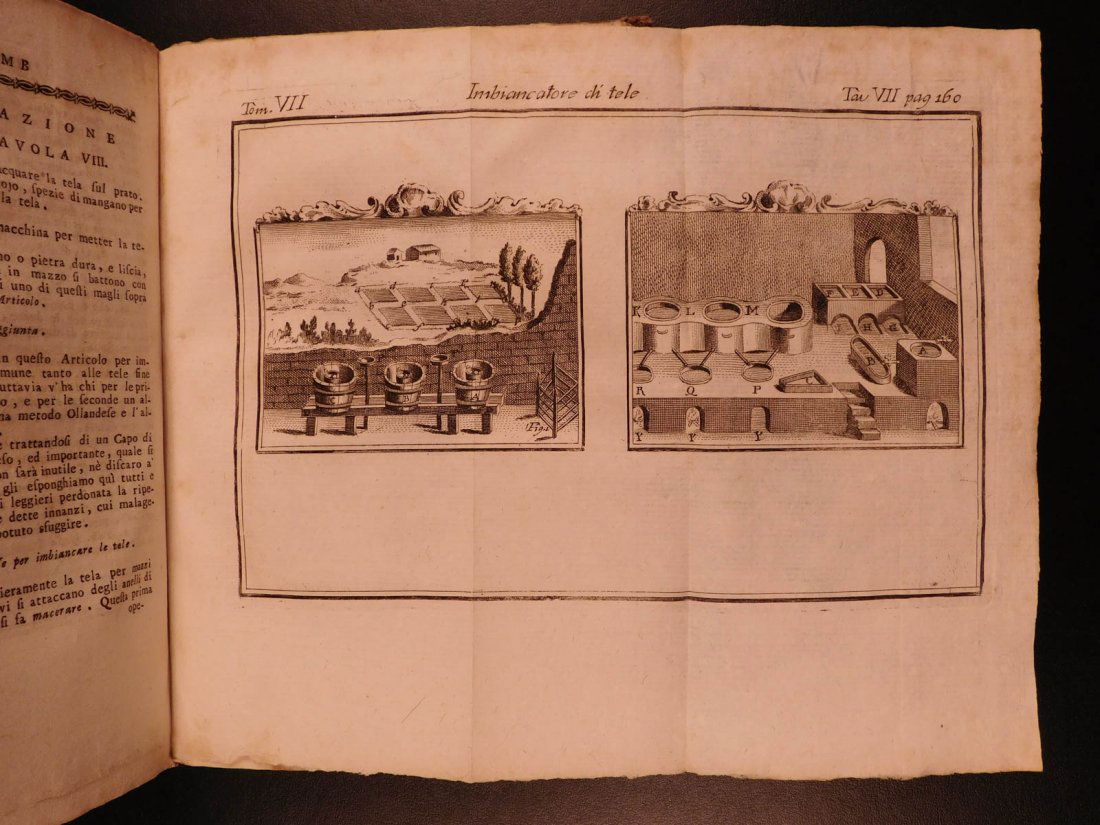 MB
AZIONE
AVOLA VIII.
acquare la tela ſul prato.
ojo, ſpezie di mangano per
la tela.
macchina per metter la te-
no o pietra dura, e liſcia,
in mazzo ſi battono con
i uno di queſti magli ſopra
Articolo.
ggiunta.
in queſto Articolo per im-
mune tanto alle tele fine
uttavia v'ha chi per le pri-
o, e per le ſeconde un al-
ma metodo Ollandeſe e l'al-
e trattandoſi di un Capo di
ſo, ed importante, quale ſi
on ſarà inutile, nè diſcaro a'
gli eſponghiamo quì tutti e
i leggieri perdonata la ripe-
e dette innanzi, cui malage-
potuto sfuggire.
per imbiancare le tele.
ieramente la tela per mazzi
vi ſi attaccano degli anelli di
ſi fa macerare. Queſta prima
ope-
Tom. VII
Imbiancatore di tele
Tav VII pag 160
B A
Fig.
K L M
H
B A
R Q P
Y Y Y